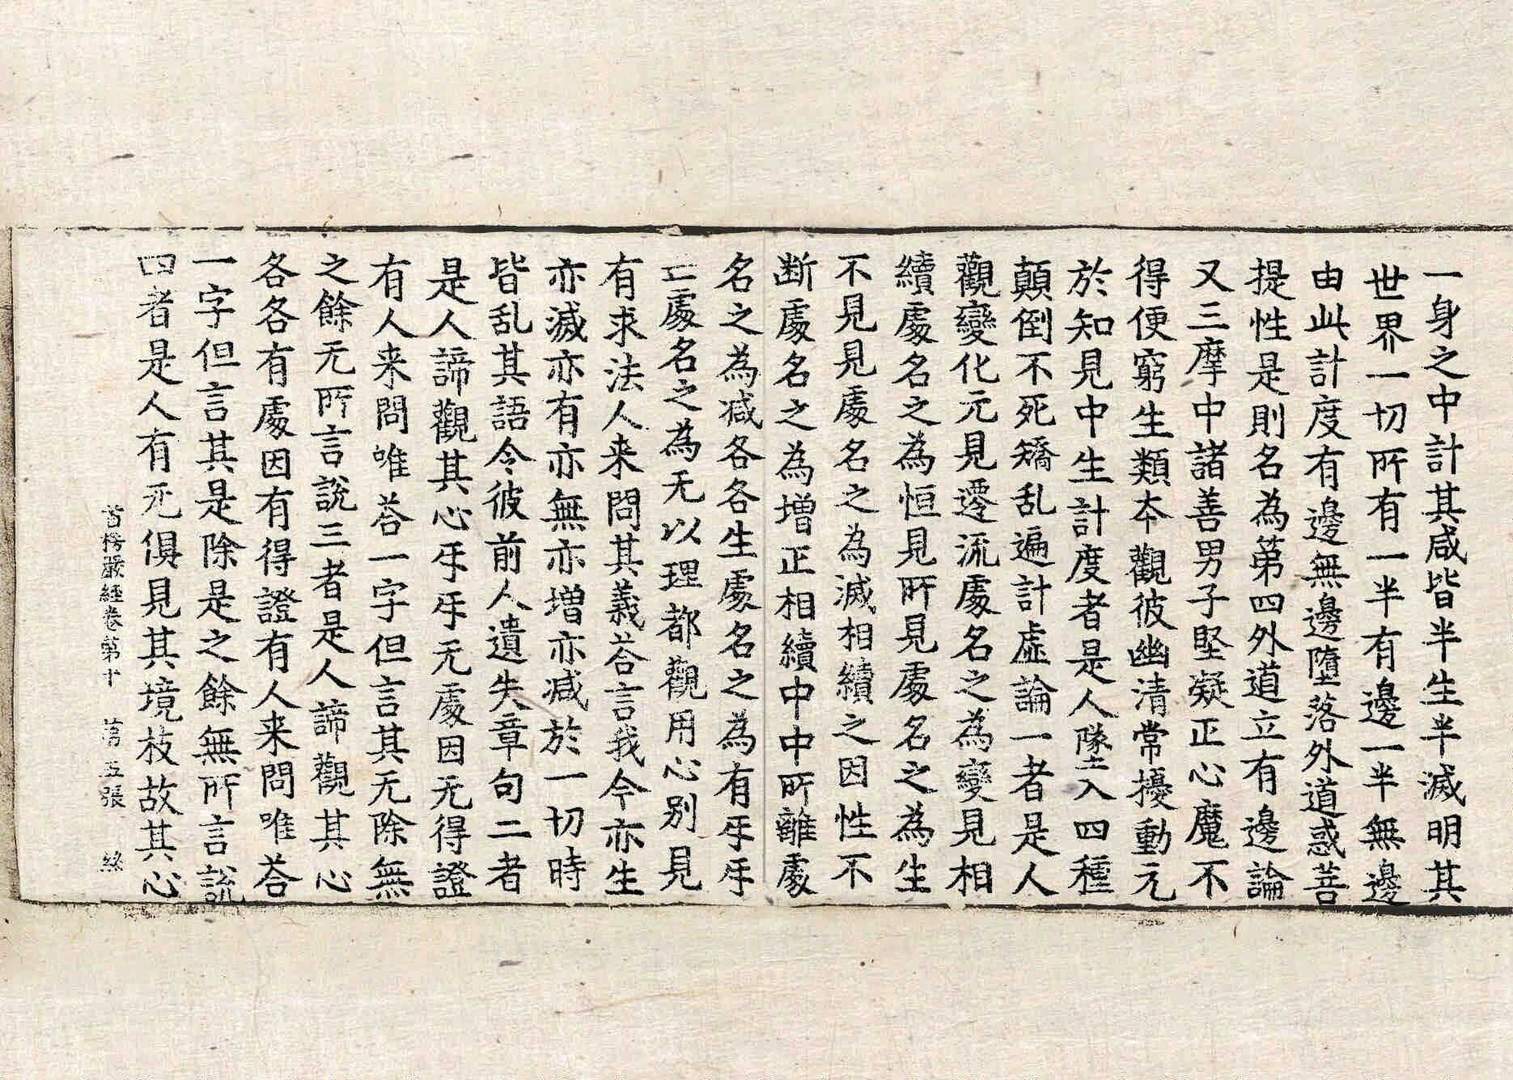 一身之中計其咸皆半生半滅明其
世界一切所有一半有邊一半無邊
由此計度有邊無邊墮落外道惑菩
提性是則名為第四外道立有邊論
又三摩中諸善男子堅凝正心魔不
得便窮生類夲觀彼幽清常擾動元
於知見中生計度者是人墜入四種
顛倒不死矯乱遍計虛論一者是人
觀變化元見遷流處名之為變見相
續處名之為恒見所見處名之為生
不見見處名之為滅相續之因性不
断處名之為增正相續中中所離處
名之為减各各生處名之為有㸦㸦
亡處名之為无以理都觀用心別見
有求法人来問其義荅言我今亦生
亦滅亦有亦無亦增亦减於一切時
皆乱其語令彼前人遺失章句二者
是人諦觀其心㸦㸦无處因无得證
有人来問唯荅一字但言其无除無
之餘无所言說三者是人諦觀其心
各各有處因有得證有人来問唯荅
一字但言其是除是之餘無所言說
四者是人有无俱見其境枝故其心
首楞嚴經卷第十 苐五張 絲